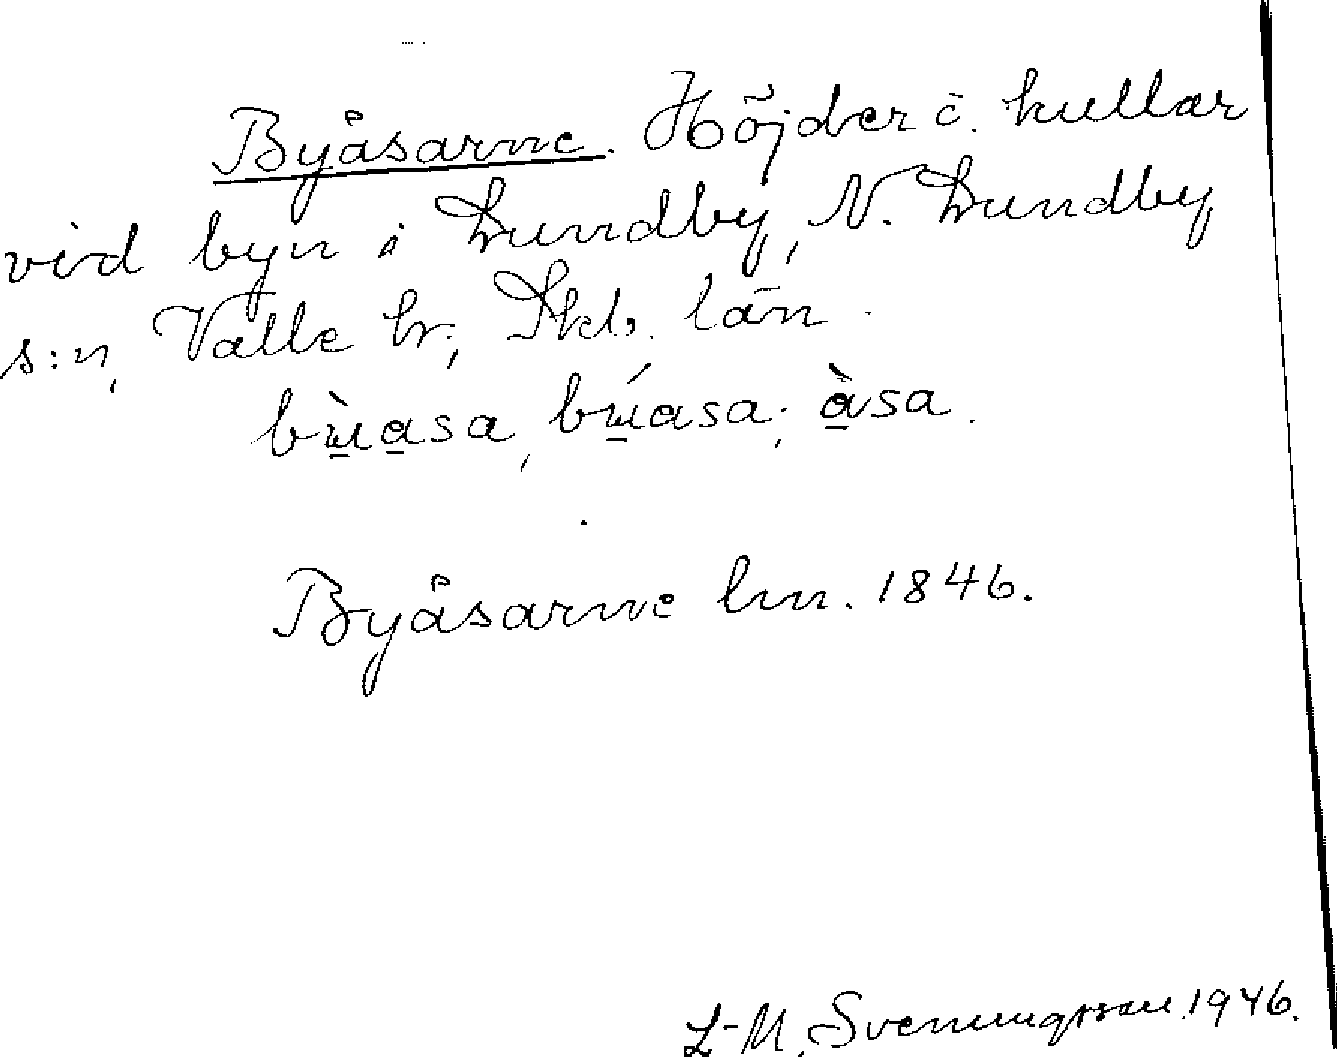 Byåsarne. Höjder o. kullar
vid byn i Lundby, N. Lundby
s:n, Valle hr, Skb. län.
bɯ̀asa, bɯ́asa; àsa.
Byåsarne lm. 1846.
L-M. Svenungsson 1946.